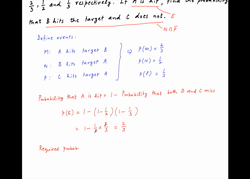 2/3, 1/2 and 1/3 respectively. If A is hit, find the probability
that B hits the target and C does not.
Define events:
M: A hits target
N: B hits target
P: C hits target
P(M) = 2/3
P(N) = 1/2
P(P) = 1/3
Probability that A is hit = 1 - Probability that both B and C miss
P(E) = 1 - (1 - 1/2)(1 - 1/3)
= 1 - 1/2 × 2/3 = 2/3
Required probab